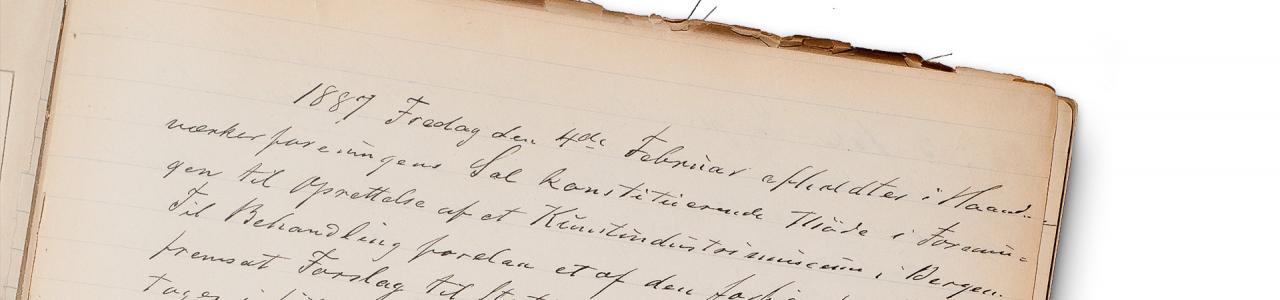 1887 Fredag den 4de Februar afholdtes i Haand-
værkerforeningens Sal konstituerende Møde i Forenin-
gen til Oprettelse af et Kunstindustrimuseum i Bergen.
Til Behandling forelaa et af den
fremsat Forslag til